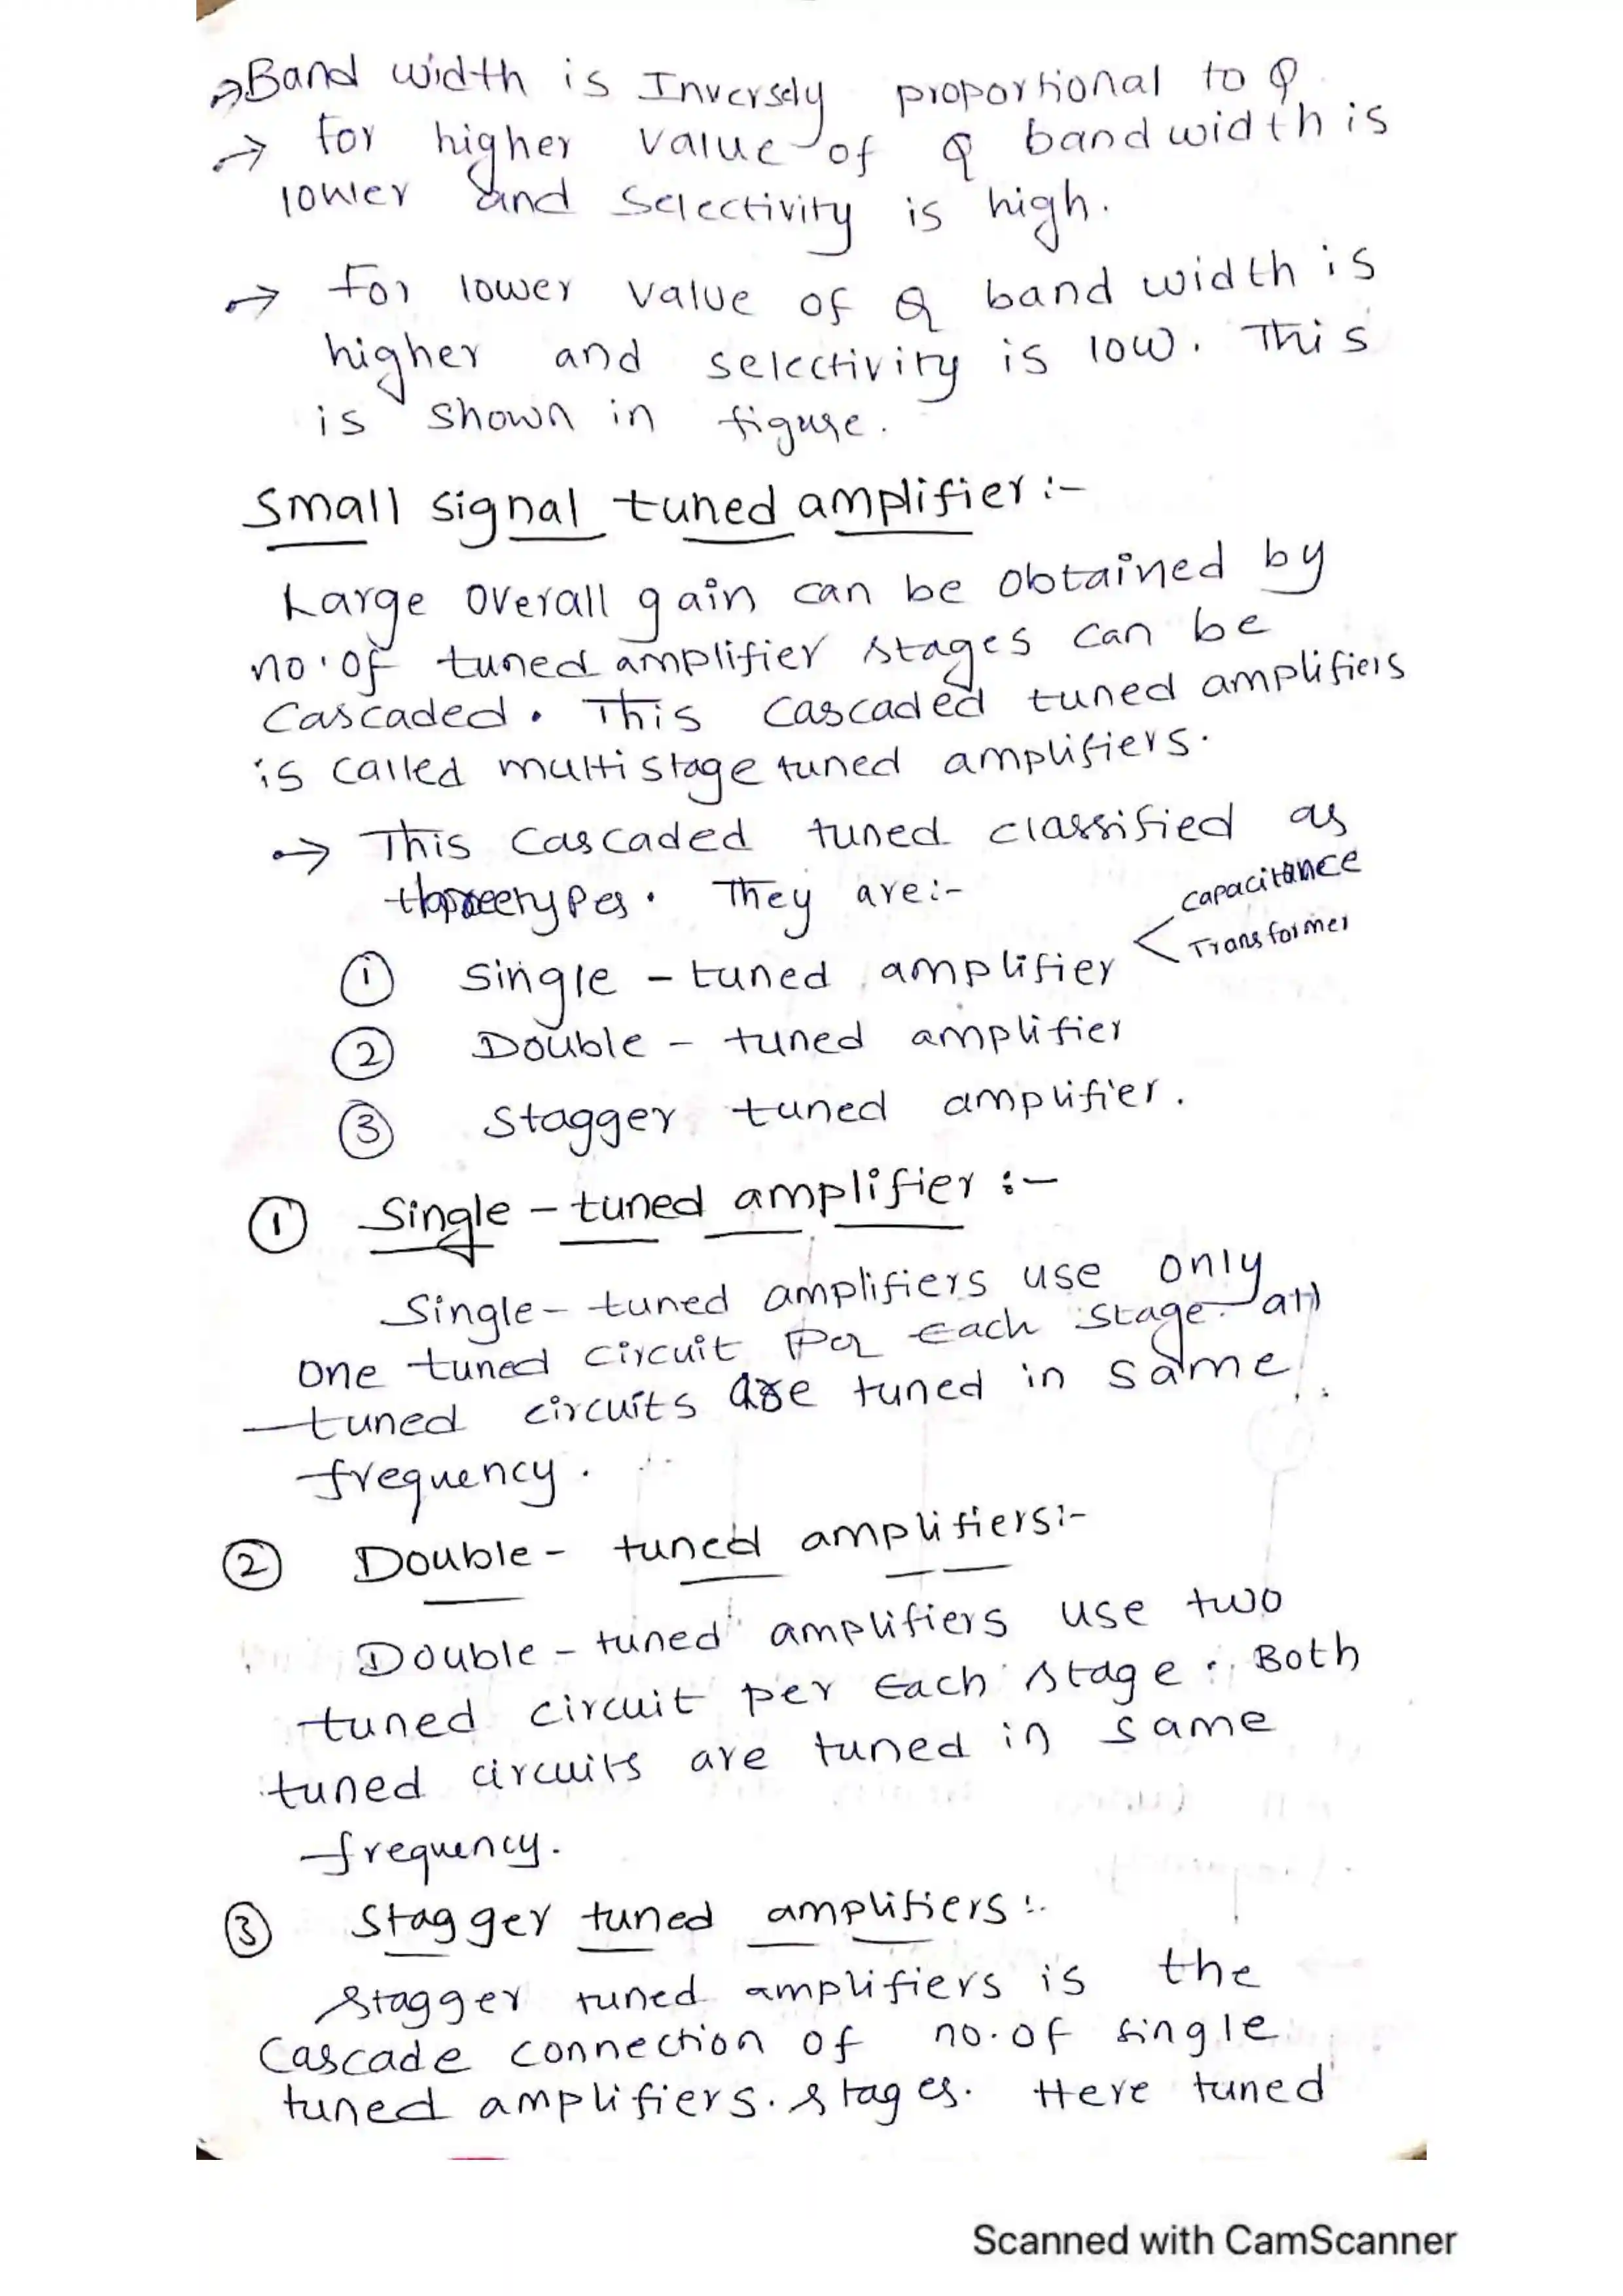 → Band width is Inversely proportional to Q.
→ for higher value of Q band width is
lower and Selectivity is high.
→ for lower value of Q band width is
higher and selectivity is low. This
is shown in figure.
Small signal tuned amplifier :-
Large overall gain can be obtained by
no. of tuned amplifier stages can be
Cascaded. This Cascaded tuned amplifiers
is called multistage tuned amplifiers.
→ This Cascaded tuned classified as
types. They are:-
① Single - tuned amplifier < capacitance
Transformer
② Double - tuned amplifier
③ Stagger tuned amplifier.
① Single - tuned amplifier :-
Single - tuned amplifiers use only
one tuned circuit per each stage. all
tuned circuits are tuned in same
frequency.
② Double - tuned amplifiers:-
Double - tuned amplifiers use two
tuned circuit per Each stage. Both
tuned circuits are tuned in same
frequency.
③ Stagger tuned amplifiers:-
Stagger tuned amplifiers is the
Cascade connection of no. of single
tuned amplifiers. stages. Here tuned
Scanned with CamScanner